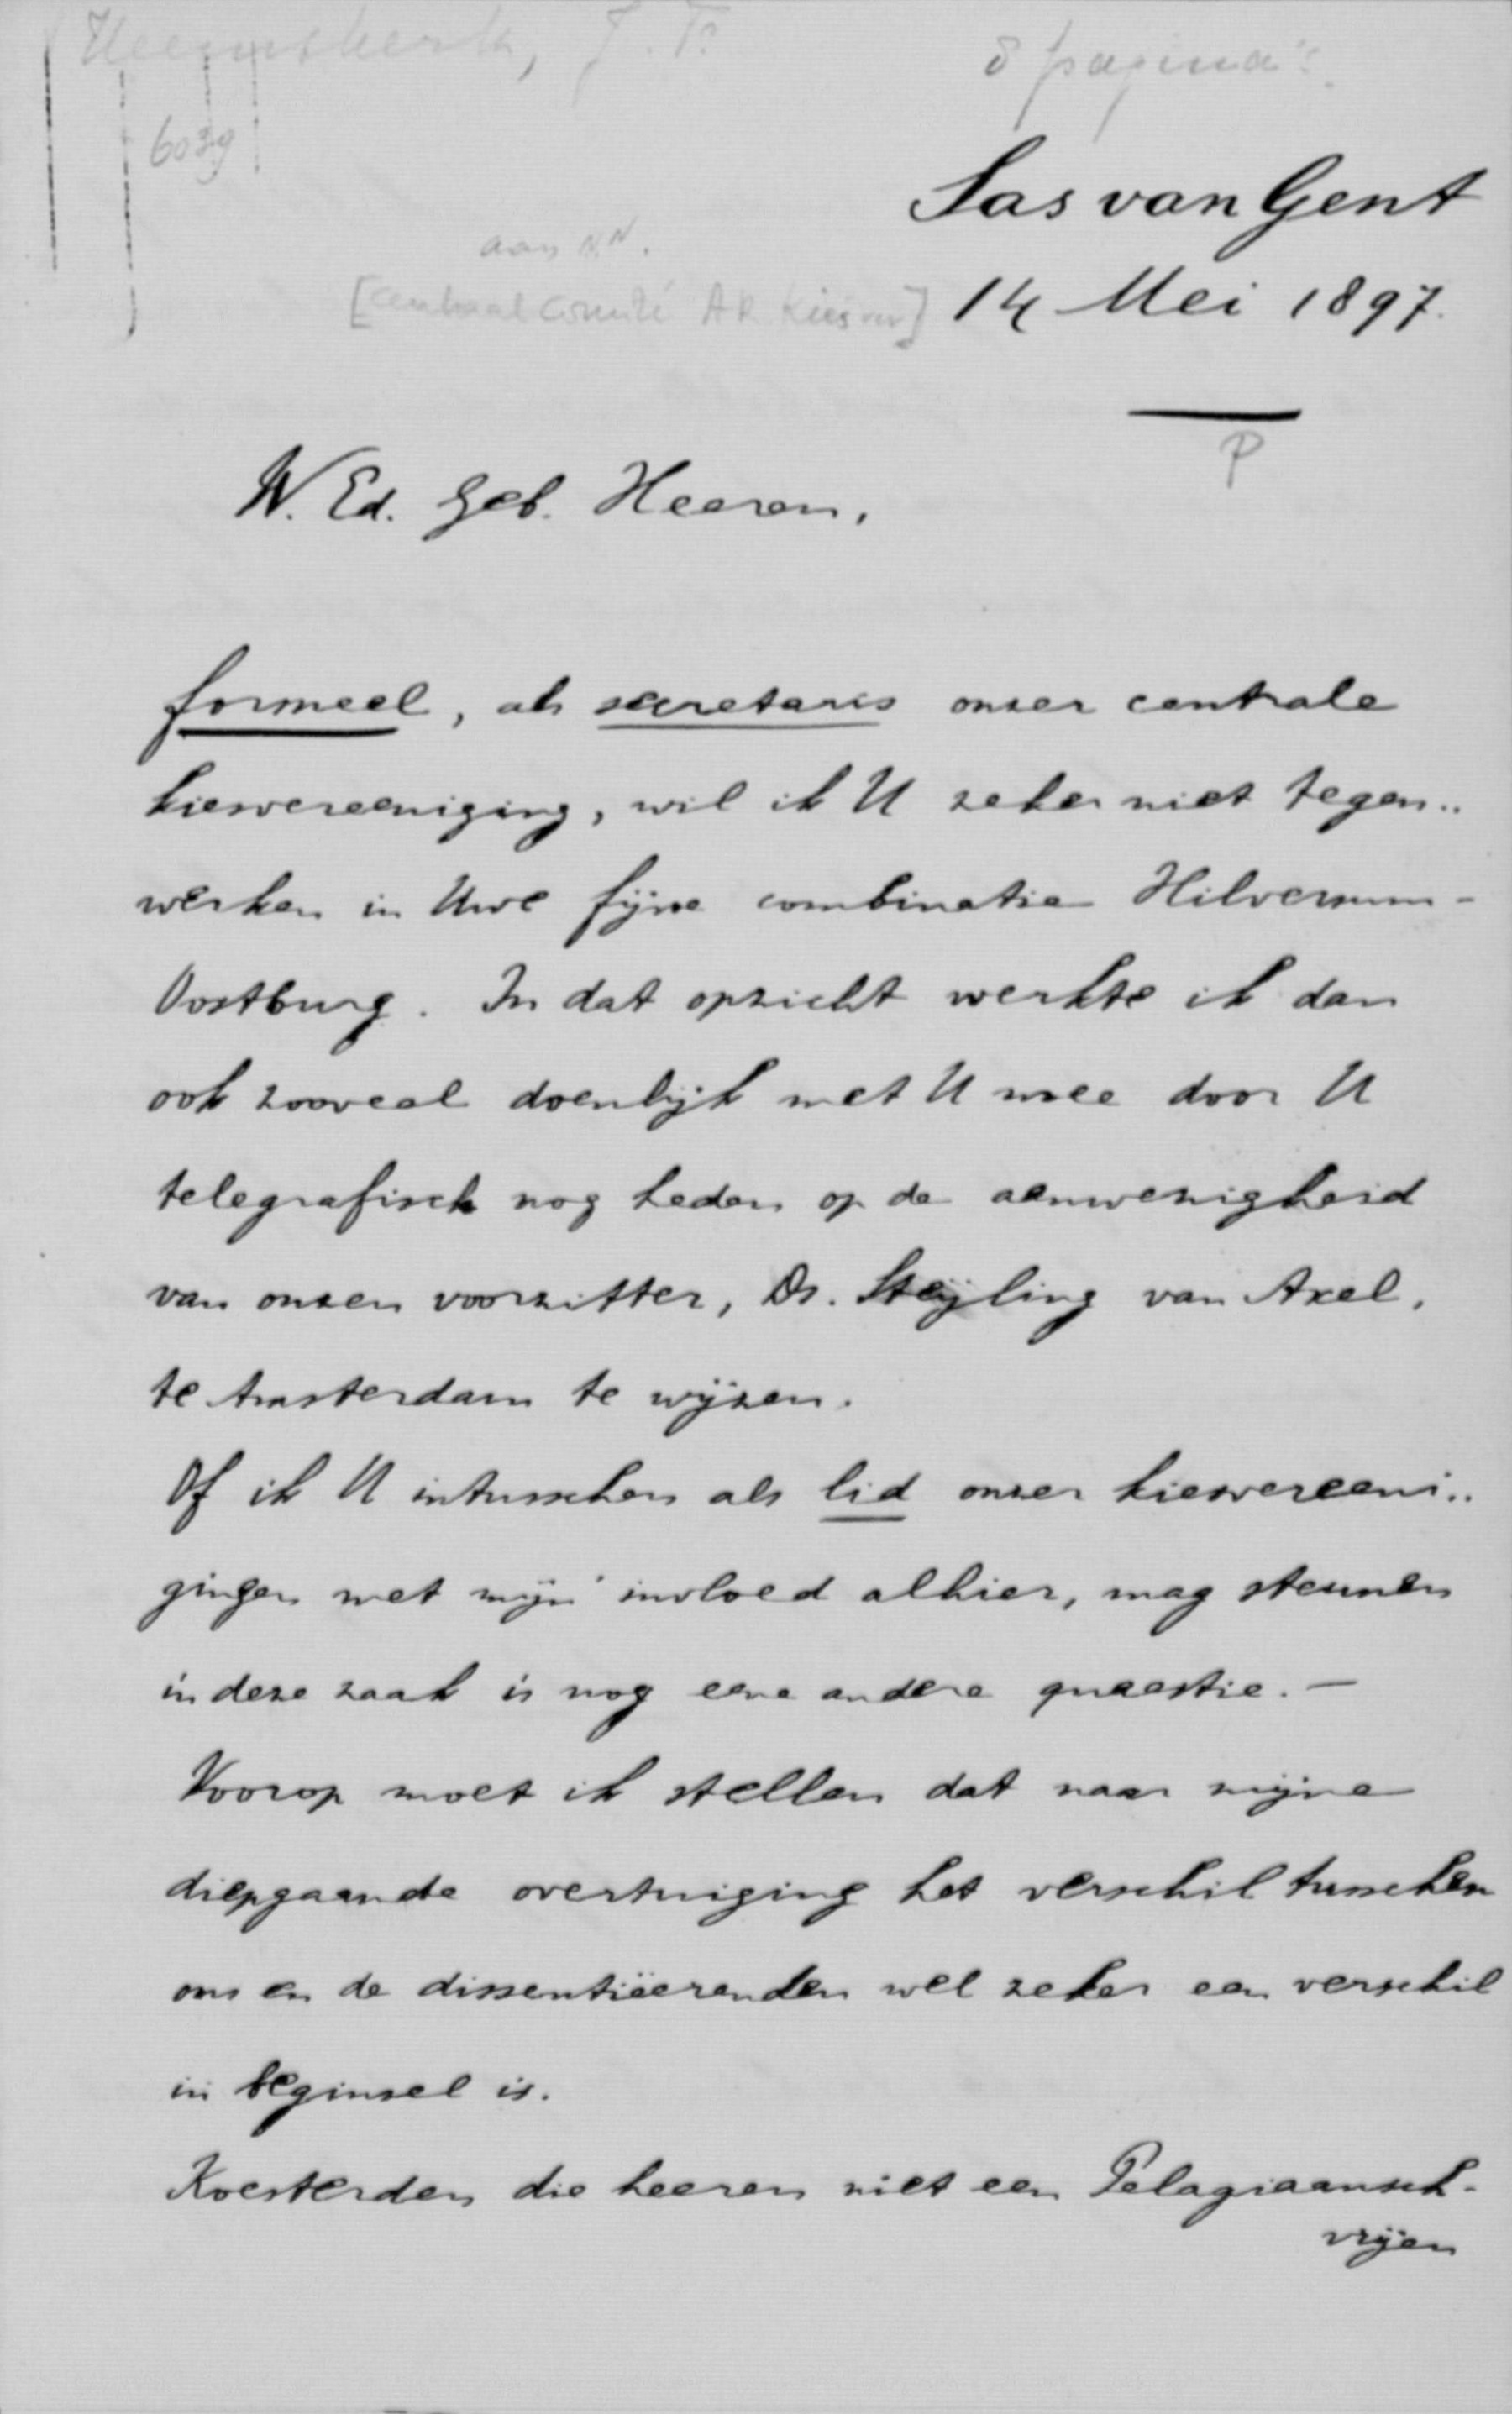 Heemskerk, J. Fr.
8 pagina's.
6039
Sas van Gent
aan N.N.
[Centraal Comité AR Kiesver]
14 Mei 1897.
P
W. Ed. Geb. Heeren,
formeel, als secretaris onzer centrale
kiesvereeniging, wil ik U zeker niet tegen..
werken in Uwe fijne combinatie Hilversum-
Oostburg. In dat opzicht werkte ik dan
ook zooveel doenlijk met U mee door U
telegrafisch nog heden op de aanwezigheid
van onzen voorzitter, Ds. Steijling van Axel,
te Amsterdam te wijzen.
Of ik U intusschen als lid onzer kiesvereeni..
gingen met mijn invloed alhier, mag steunen
in deze zaak is nog eene andere quaestie. —
Voorop moet ik stellen dat naar mijne
diepgaande overtuiging het verschil tusschen
ons en de dissentiëerenden wel zeker een verschil
in beginsel is.
Koesterden die heeren niet een Pelagiaansch-
vrijen